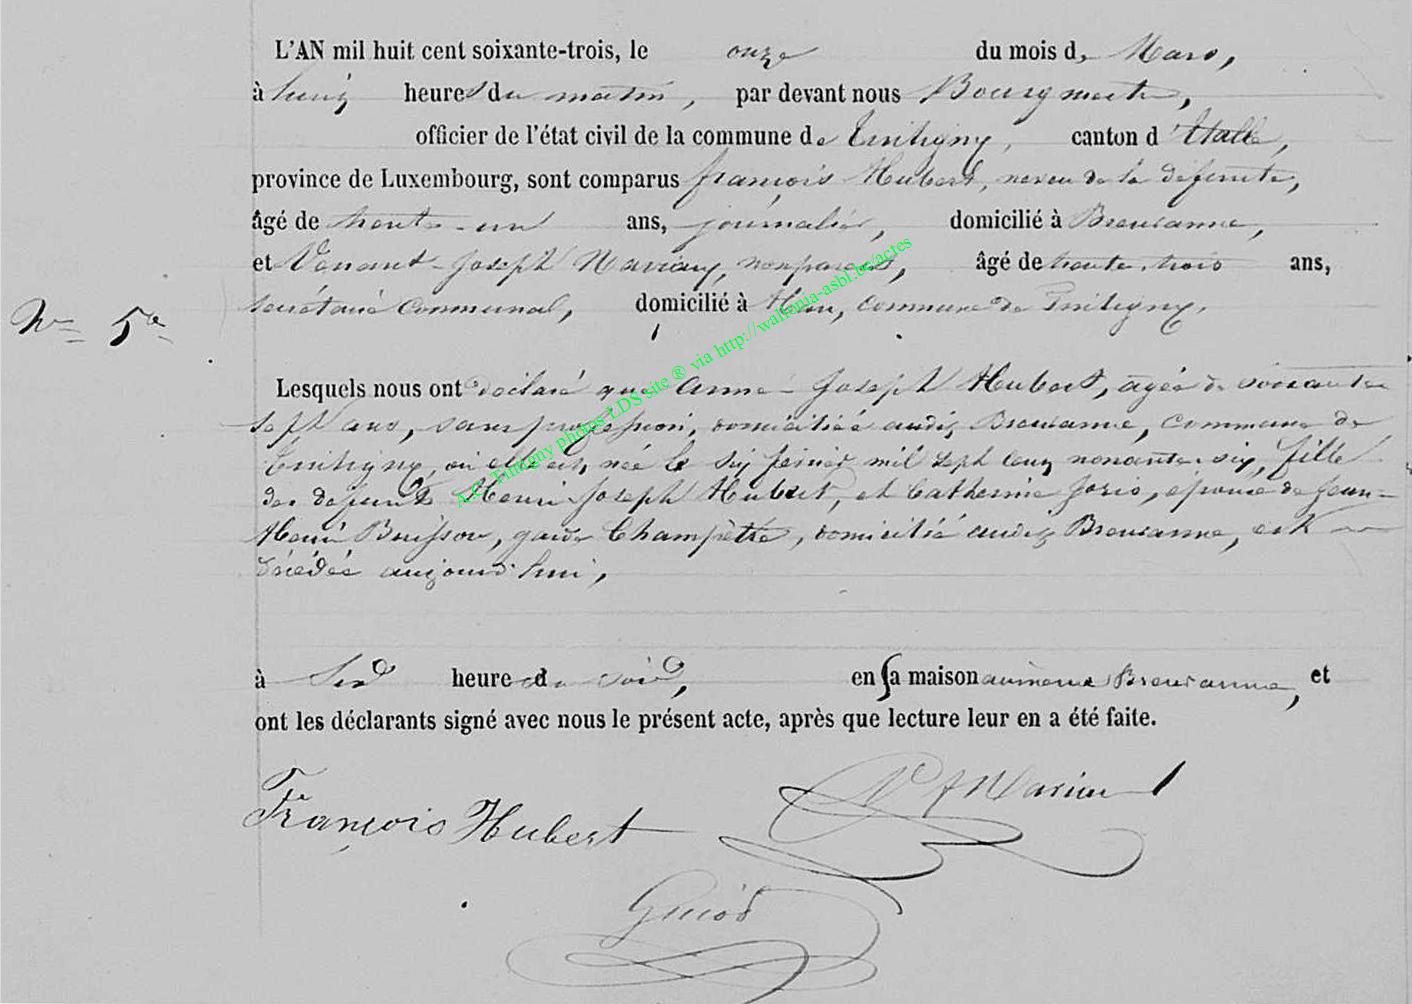 L'AN mil huit cent soixante-trois, le onze du mois de Mars,
à huit heures du matin, par devant nous Bourgmestre,
officier de l'état civil de la commune de Tintigny, canton d'Etalle,
province de Luxembourg, sont comparus françois Hubert, neveu de la défunte,
âgé de trente-un ans, journalier, domicilié à Breuvanne,
et Venant-Joseph non parent, âgé de trente-trois ans,
secrétaire communal, domicilié à Han, commune de Tintigny,
N° 5
Lesquels nous ont déclaré que Anne-Joseph Hubert, agée de soixante
sept ans, sans profession, domiciliée audit Breuvanne, commune de
Tintigny, où elle est née le six février mil sept cent nonante-six, fille
des défunts Henri-Joseph Hubert, et Catherine Joris, épouse de Jean-
Henri Buisson, garde Champêtre, domicilié audit Breuvanne, est
décédée aujourd'hui,
à heure du soir, en sa maison au même Breuvanne, et
ont les déclarants signé avec nous le présent acte, après que lecture leur en a été faite.
François Hubert
Guiot
A.C. Tintigny photos LDS site ® via http://wallonia-asbl.be/actes